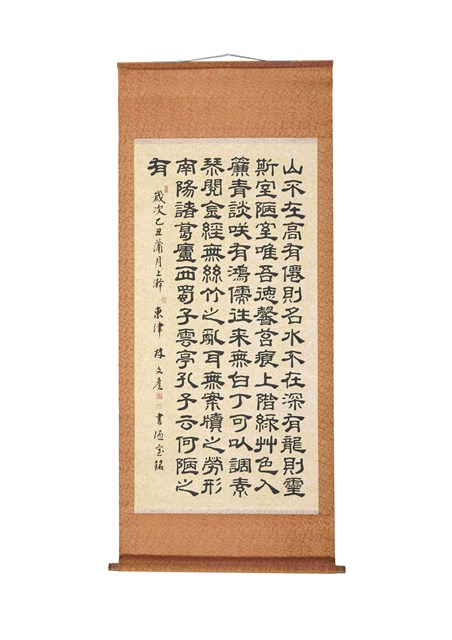 山不在高有僊則名水不在深有龍則靈
斯室陋室唯吾德馨苔痕上階綠艸色入
簾青談咲有鴻儒往来無白丁可以調素
琴閱金經無絲竹之亂耳無案牘之勞形
南陽諸葛廬西蜀子雲亭孔子云何陋之
有
歲次己丑蒲月上澣 東津 文 書陋室銘